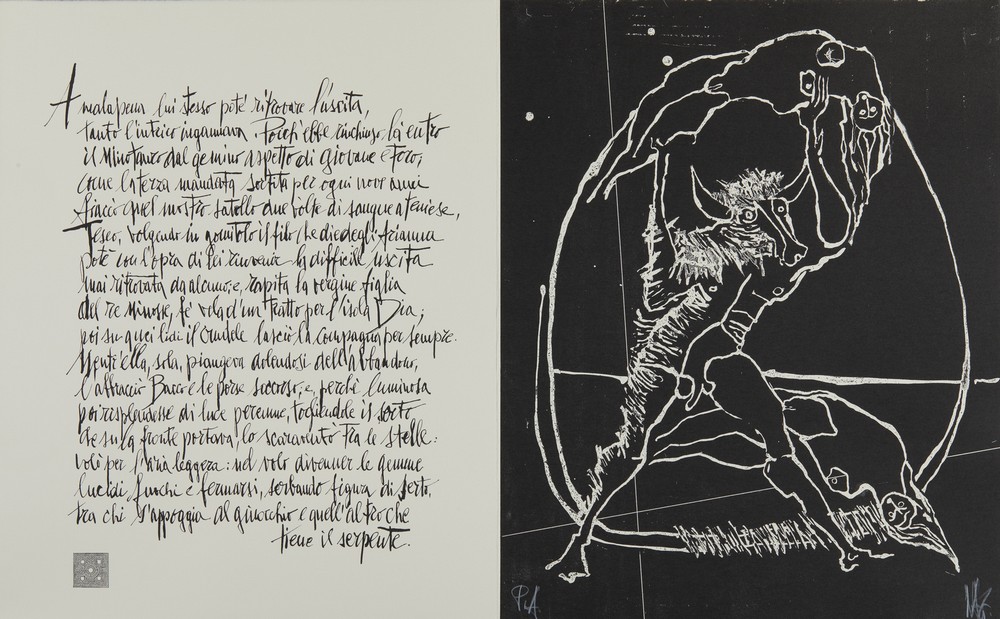 A malapena lui stesso poté ritrovare l'uscita,
tanto l'intrico ingannava. Poich'ebbe rinchiuso là entro
il Minotauro dal gemino aspetto di giovane e toro,
come la terza mandata sortita per ogni nove anni
fiaccò quel mostro satollo due volte di sangue ateniese,
Teseo, volgendo in gomitolo il filo che diedegli Arianna
poté con l'opra di lei rinvenir la difficile uscita
mai ritrovata da alcuno; e, rapita la vergine figlia
del re Minosse, fé vela d'un tratto per l'isola Dia;
poi su quei lidi il crudele lasciò la compagna per sempre.
Mentr'ella, sola, piangeva dolendosi dell'abbandono,
l'abbracciò Bacco e le porse soccorso; e, perché luminosa
poi risplendesse di luce perenne, togliendole il serto
che sulla fronte portava, lo scaraventò tra le stelle:
volò per l'aria leggera: nel volo divenner le gemme
lucidi fuochi e fermarsi, serbando figura di serto,
tra chi s'appoggia al ginocchio e quell'altro che
tiene il serpente.
P.d.A.